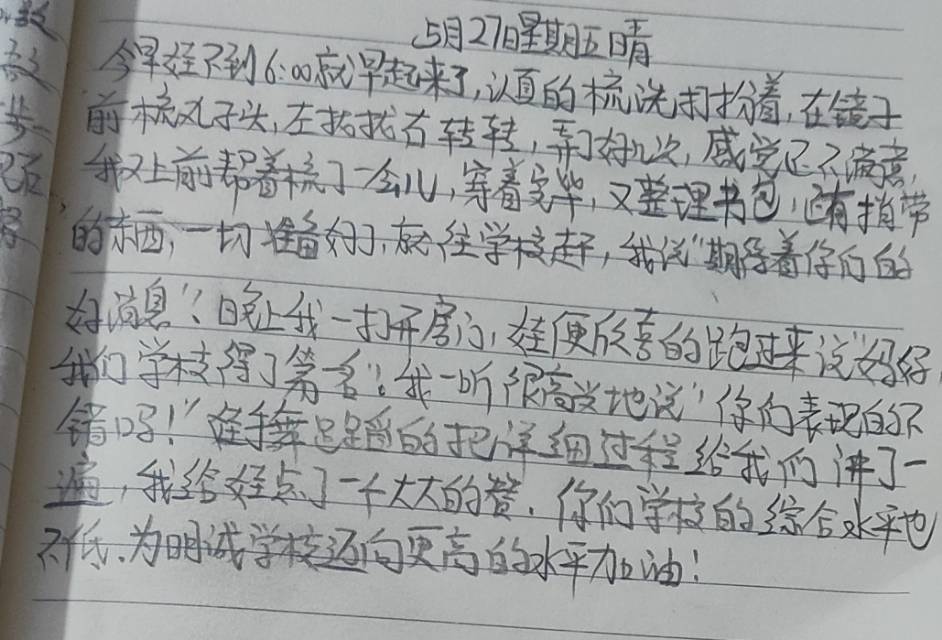 5月27日星期五晴
今早娃不到6:00就早起来了,认真的梳洗打扮着,在镜子
前梳丸子头,左拔拔右转转,弄了好几次,感觉还不满意,
我又上前帮着梳了一会儿,穿着完毕,又整理书包,还有捎带
的东西,一切准备好了,就往学校赶,我说"期待着你们的
好消息"!晚上我一打开房门,娃便欣喜的跑过来说"妈妈,
我们学校得了第一名"!我一听很高兴地说"你们表现的不
错吗!"娃手舞足蹈的把详细过程给我们讲了一
遍,我给娃点了一个大大的赞.你们学校的综合水平也
不低.为明诚学校迈向更高的水平加油!